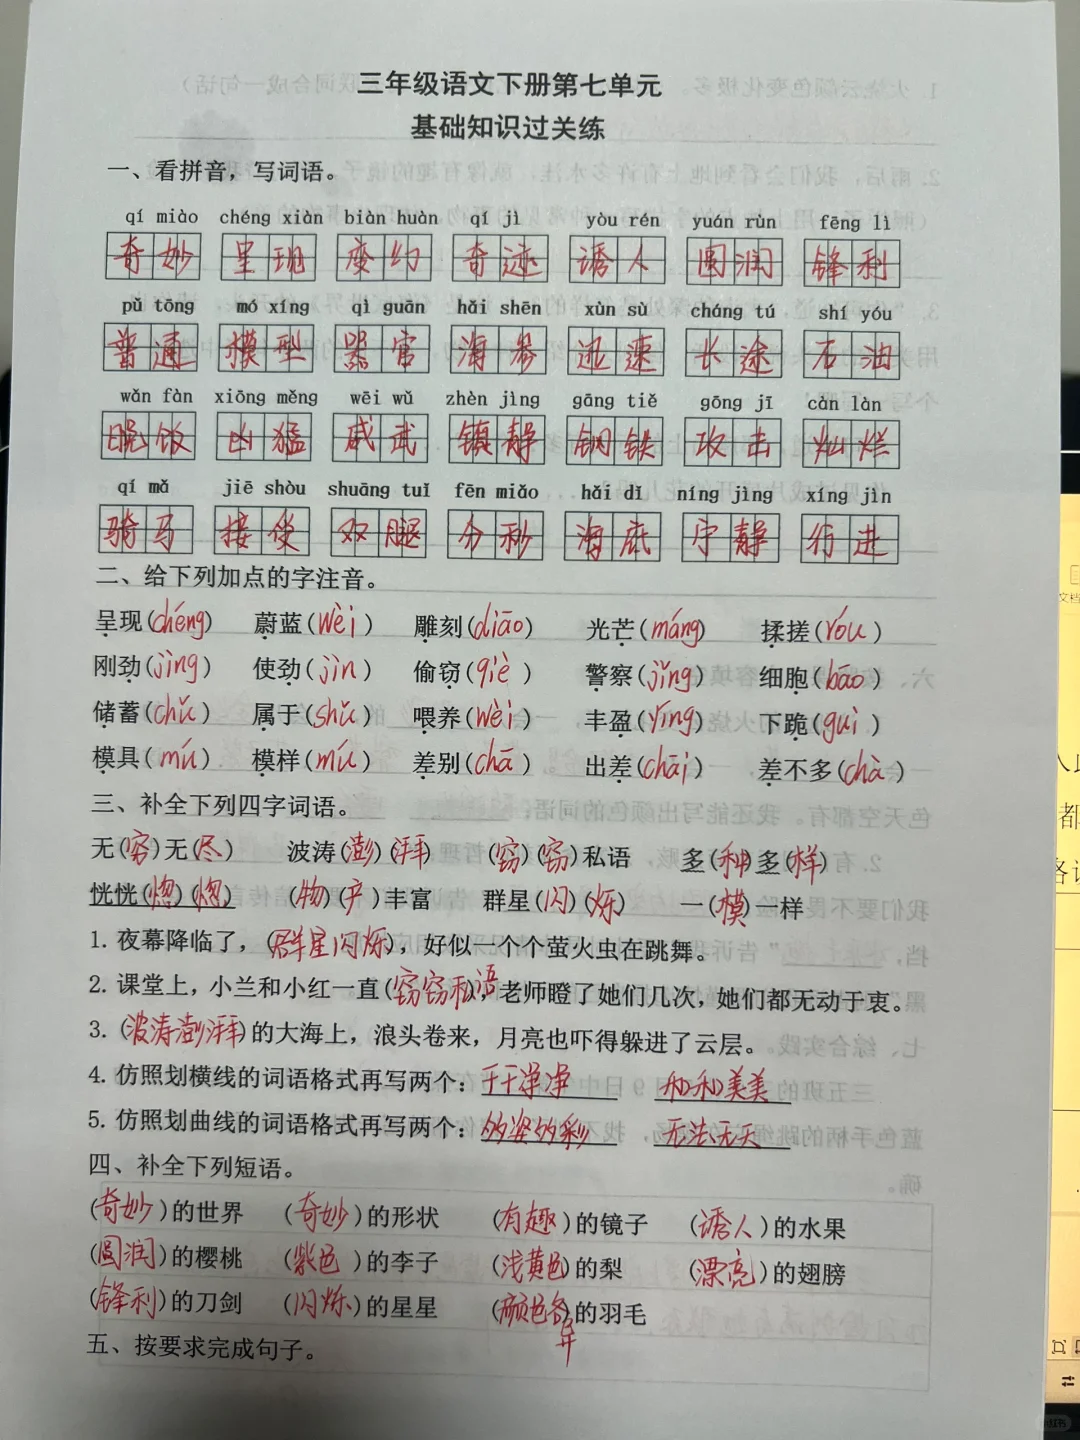 三年级语文下册第七单元
基础知识过关练
一、看拼音，写词语。
qí miào chéng xiàn biàn huàn qí jì yòu rén yuán rùn fēng lì
奇妙 呈现 变幻 奇迹 诱人 圆润 锋利
pǔ tōng mó xíng qì guān hǎi shēn xùn sù cháng tú shí yóu
普通 模型 器官 海参 迅速 长途 石油
wǎn fàn xiōng měng wēi wǔ zhèn jìng gāng tiě gōng jī càn làn
晚饭 凶猛 威武 镇静 钢铁 攻击 灿烂
qí mǎ jiē shòu shuāng tuǐ fēn miǎo hǎi dǐ níng jìng xíng jìn
骑马 接受 双腿 分秒 海底 宁静 行进
二、给下列加点的字注音。
呈现(chéng) 蔚蓝(wèi) 雕刻(diāo) 光芒(máng) 揉搓(róu)
刚劲(jìng) 使劲(jìn) 偷窃(qiè) 警察(jǐng) 细胞(bāo)
储蓄(chǔ) 属于(shǔ) 喂养(wèi) 丰盈(yíng) 下跪(guì)
模具(mú) 模样(mú) 差别(chā) 出差(chāi) 差不多(chà)
三、补全下列四字词语。
无(穷)无(尽) 波涛(澎)(湃) (窃)(窃)私语 多(种)多(样)
恍恍(惚)(惚) (物)(产)丰富 群星(闪)(烁) 一(模)一样
1. 夜幕降临了，(群星闪烁)，好似一个个萤火虫在跳舞。
2. 课堂上，小兰和小红一直(窃窃私语)，老师瞪了她们几次，她们都无动于衷。
3. (波涛澎湃)的大海上，浪头卷来，月亮也吓得躲进了云层。
4. 仿照划横线的词语格式再写两个：干干净净 和和美美
5. 仿照划曲线的词语格式再写两个：多姿多彩 无法无天
四、补全下列短语。
(奇妙)的世界 (奇妙)的形状 (有趣)的镜子 (诱人)的水果
(圆润)的樱桃 (紫色)的李子 (浅黄色)的梨 (漂亮)的翅膀
(锋利)的刀剑 (闪烁)的星星 (颜色各异)的羽毛
五、按要求完成句子。